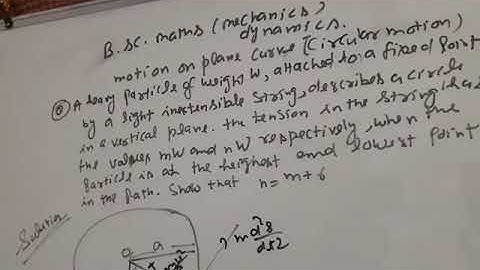 B.sc. maths (mechanics)
dynamics.
motion on plane curve [circular motion)
Q A heavy particle of weight W, attached to a fixed point
by a light inextensible string, describes a circle
in a vertical plane. the tension in the string has
the values mW and nW respectively, when the
particle is at the heighest and lowest point
in the path. Show that n = m + 6
Solution
O a
m d²s
dt2